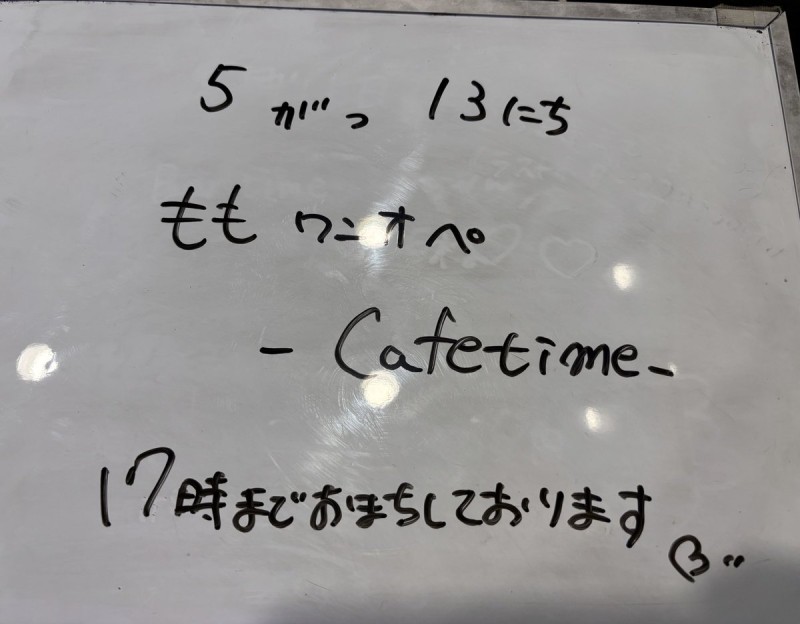 5がつ 13にち
ももワンオペ
- Cafetime -
17時までおまちしております